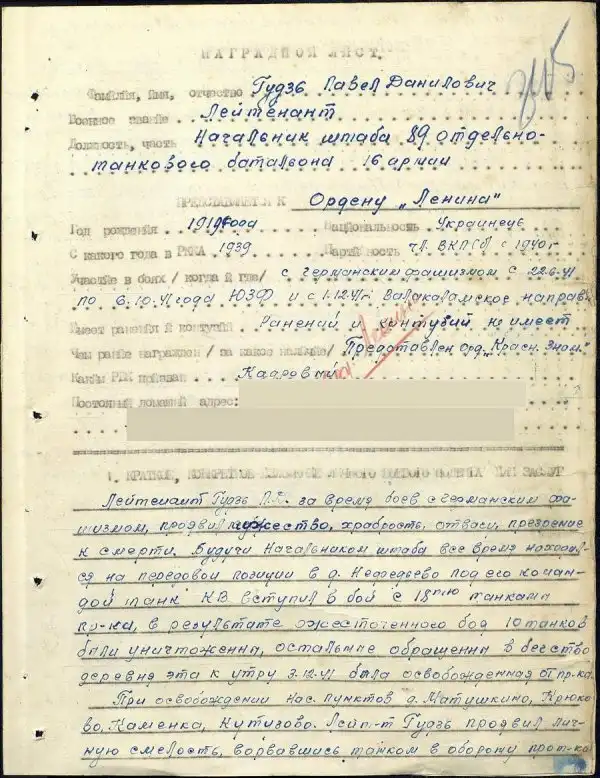 НАГРАДНОЙ ЛИСТ.
Фамилия, имя, отчество Гудзь Павел Данилович
Военное звание Лейтенант
Должность, часть Начальник штаба 89 отдельно-
танкового баталвона 16 армии
ПРЕДСТАВЛЯЕТСЯ К Ордену „Ленина"
Год рождения 1919 года Национальность Украинець
С какого года в РККА 1939 Партийность чл. ВКП(б) с 1940 г
Участие в боях /когда и где/ с германским фашизмом с 22.6.41
по 6.10.41 года ЮЗФ и с 1.12.41г. Валакаламское направ.
Имеет ранения и контузии Ранений и контузий не имеет
Чем ранее награжден /за какое отличие/ Представлен орд. „Красн. Знам."
Каким РВК призван Кадровый
Постоянный домашний адрес:
1. КРАТКОЕ, КОНКРЕТНОЕ ИЗЛОЖЕНИЕ ЛИЧНОГО БОЕВОГО ПОДВИГА ИЛИ ЗАСЛУГ
Лейтенант Гудзь П.Д. за время боев с германским фа-
шизмом, проявил мужество, храбрость, отвагу, презрение
к смерти. Будучи Начальником штаба все время находил-
ся на передовой позиции в д. Нефедьево под его коман-
дой танк КВ вступил в бой с 18тью танками
пр-ка, в результате ожесточенного боя 10 танков
были уничтоженны, остальные обращены в бегство
деревня эта к утру 3.12.41 была освобожденная от пр-ка.
При освобождении нас. пунктов д. Матушкино, Крюко-
во, Каменка, Кутузово. Лейт-т Гудзь проявил лич-
ную смелость, ворвавшись танком в оборону прот-ка